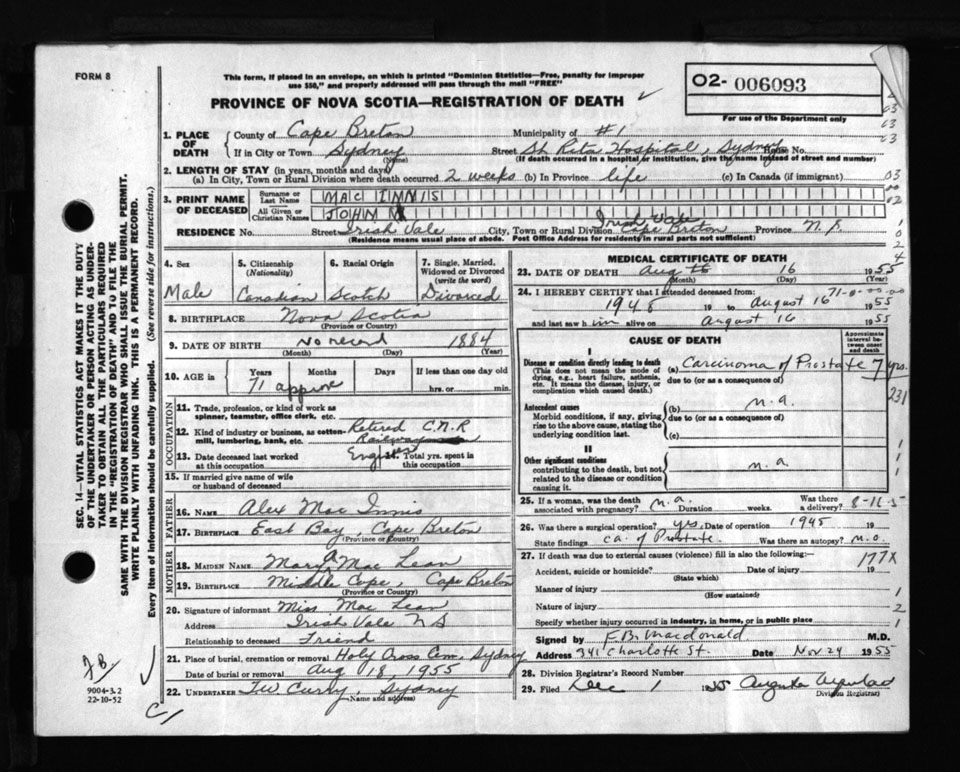 FORM 8
This form, if placed in an envelope, on which is printed "Dominion Statistics—Free, penalty for improper
use $50," and properly addressed will pass through the mail "FREE"
PROVINCE OF NOVA SCOTIA—REGISTRATION OF DEATH
02- 006093
For use of the Department only
1. PLACE OF DEATH County of Cape Breton Municipality of #1
If in City or Town Sydney (Name) Street St Rita Hospital, Sydney House No.
(If death occurred in a hospital or institution, give the name instead of street and number)
2. LENGTH OF STAY (in years, months and days)
(a) In City, Town or Rural Division where death occurred 2 weeks (b) In Province life (c) In Canada (if immigrant)
3. PRINT NAME OF DECEASED Surname or Last Name MAC INNIS
All Given or Christian Names JOHN
RESIDENCE No. Street Irish Vale City, Town or Rural Division Irish Vale Cape Breton Province N.S.
(Residence means usual place of abode. Post Office Address for residents in rural parts not sufficient)
4. Sex Male
5. Citizenship (Nationality) Canadian
6. Racial Origin Scotch
7. Single, Married, Widowed or Divorced (write the word) Divorced
8. BIRTHPLACE Nova Scotia
(Province or Country)
9. DATE OF BIRTH No record 1884
(Month) (Day) (Year)
10. AGE in Years Months Days If less than one day old
71 approx hrs. or min.
OCCUPATION
11. Trade, profession, or kind of work as
spinner, teamster, office clerk, etc.
12. Kind of industry or business, as cotton-
mill, lumbering, bank, etc. Retired C.N.R
Railway
13. Date deceased last worked
at this occupation Total yrs. spent in
this occupation
15. If married give name of wife
or husband of deceased
FATHER
16. NAME Alex Mac Innis
17. BIRTHPLACE East Bay, Cape Breton
(Province or Country)
MOTHER
18. MAIDEN NAME Mary A Mac Lean
19. BIRTHPLACE Middle Cape, Cape Breton
(Province or Country)
20. Signature of informant Miss Mac Lean
Address Irish Vale N S
Relationship to deceased Friend
21. Place of burial, cremation or removal Holy Cross Cem, Sydney
Date of burial or removal Aug 18, 1955
22. UNDERTAKER T W Curry, Sydney
(Name and address)
MEDICAL CERTIFICATE OF DEATH
23. DATE OF DEATH 16 1955
(Month) (Day) (Year)
24. I HEREBY CERTIFY that I attended deceased from:
1948 19 to August 16 1955
and last saw him alive on August 16 1955
CAUSE OF DEATH
Approximate interval between onset and death
I
Disease or condition directly leading to death
(This does not mean the mode of
dying, e.g., heart failure, asthenia,
etc. It means the disease, injury, or
complication which caused death.)
(a) Carcinoma of Prostate 7 yrs.
due to (or as a consequence of)
Antecedent causes
Morbid conditions, if any, giving
rise to the above cause, stating the
underlying condition last.
(b) n.a.
due to (or as a consequence of)
(c)
II
Other significant conditions
contributing to the death, but not
related to the disease or condition
causing it.
n.a.
231
25. If a woman, was the death
associated with pregnancy? n.a. Duration weeks. Was there
a delivery?
26. Was there a surgical operation? yes. Date of operation 1945 19
State findings ca. of Prostate. Was there an autopsy? no.
27. If death was due to external causes (violence) fill in also the following:—
177X
Accident, suicide or homicide? Date of injury 19
(State which)
Manner of injury
(How sustained)
Nature of injury
Specify whether injury occurred in industry, in home, or in public place
Signed by F.B. Macdonald M.D.
Address 341 Charlotte St. Date Nov 24 1955
28. Division Registrar's Record Number
29. Filed Dec 1 19
Division Registrar
SEC. 14—VITAL STATISTICS ACT MAKES IT THE DUTY
OF THE UNDERTAKER OR PERSON ACTING AS UNDER-
TAKER TO OBTAIN ALL THE PARTICULARS REQUIRED
IN THE "REGISTRATION OF DEATH" AND TO FILE THE
SAME WITH THE DIVISION REGISTRAR WHO SHALL ISSUE THE BURIAL PERMIT.
WRITE PLAINLY WITH UNFADING INK. THIS IS A PERMANENT RECORD.
Every item of information should be carefully supplied. (See reverse side for instructions.)
9004-3.2
22-10-52